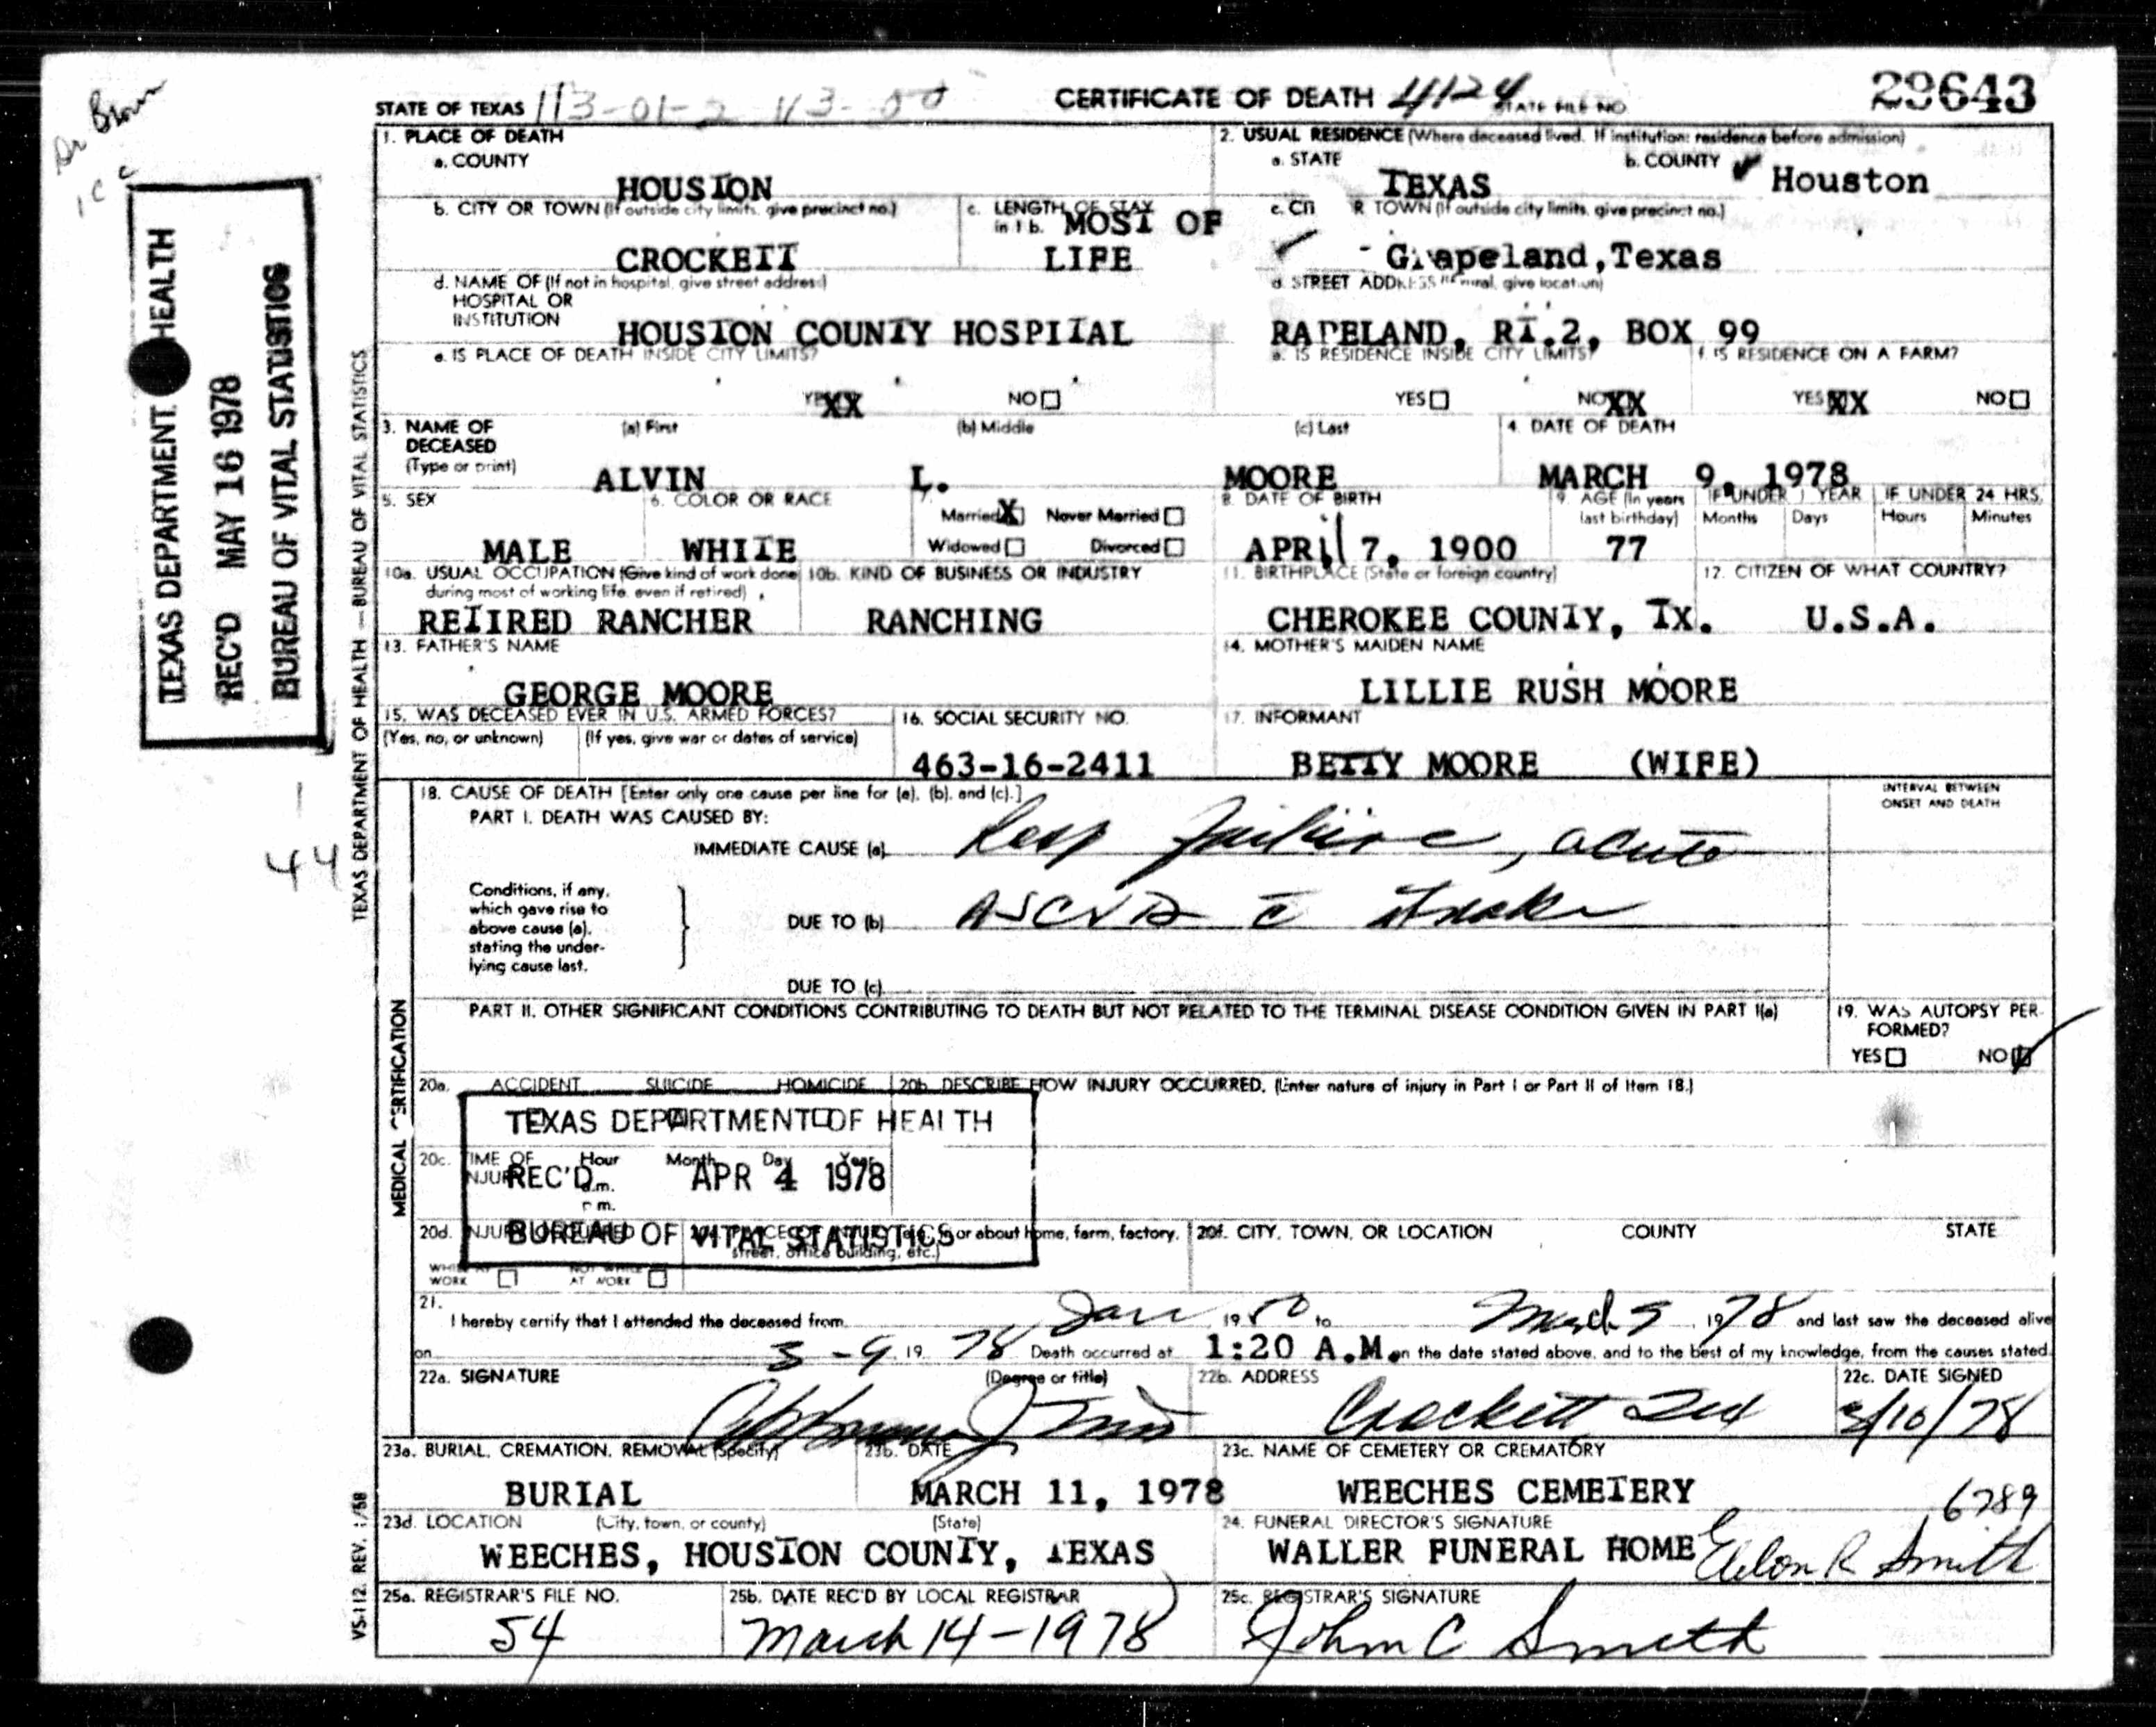 Dr Brown
1 cc
TEXAS DEPARTMENT HEALTH
REC'D MAY 16 1978
BUREAU OF VITAL STATISTICS
44
TEXAS DEPARTMENT OF HEALTH — BUREAU OF VITAL STATISTICS
VS-112. REV. 1/58
STATE OF TEXAS 113-01-2 113-00 CERTIFICATE OF DEATH 4124 STATE FILE NO. 29643
1. PLACE OF DEATH
a. COUNTY
HOUSTON
2. USUAL RESIDENCE (Where deceased lived. If institution: residence before admission)
a. STATE TEXAS b. COUNTY ✓ Houston
b. CITY OR TOWN (If outside city limits, give precinct no.)
CROCKETT
c. LENGTH OF STAY in 1 b. MOST OF
LIFE
c. CIT R TOWN (If outside city limits, give precinct no.)
✓ - Grapeland,Texas
d. NAME OF (If not in hospital, give street address)
HOSPITAL OR
INSTITUTION HOUSTON COUNTY HOSPITAL
d. STREET ADDRESS (If rural, give location)
RAPELAND, RT.2, BOX 99
e. IS PLACE OF DEATH INSIDE CITY LIMITS?
YES XX NO
e. IS RESIDENCE INSIDE CITY LIMITS?
YES NO XX
f. IS RESIDENCE ON A FARM?
YES XX NO
3. NAME OF DECEASED (Type or print)
(a) First (b) Middle (c) Last
ALVIN L. MOORE
4. DATE OF DEATH
MARCH 9, 1978
5. SEX
MALE
6. COLOR OR RACE
WHITE
7. Married X Never Married
Widowed Divorced
8. DATE OF BIRTH
APRil 7, 1900
9. AGE (In years last birthday)
77
IF UNDER 1 YEAR
Months Days
IF UNDER 24 HRS.
Hours Minutes
10a. USUAL OCCUPATION (Give kind of work done during most of working life, even if retired)
RETIRED RANCHER
10b. KIND OF BUSINESS OR INDUSTRY
RANCHING
11. BIRTHPLACE (State or foreign country)
CHEROKEE COUNTY, TX.
12. CITIZEN OF WHAT COUNTRY?
U.S.A.
13. FATHER'S NAME
GEORGE MOORE
14. MOTHER'S MAIDEN NAME
LILLIE RUSH MOORE
15. WAS DECEASED EVER IN U.S. ARMED FORCES?
(Yes, no, or unknown) (If yes, give war or dates of service)
16. SOCIAL SECURITY NO.
463-16-2411
17. INFORMANT
BETTY MOORE (WIFE)
MEDICAL CERTIFICATION
18. CAUSE OF DEATH [Enter only one cause per line for (a), (b), and (c).]
INTERVAL BETWEEN
ONSET AND DEATH
PART I. DEATH WAS CAUSED BY:
IMMEDIATE CAUSE (a) Resp failure, acute
Conditions, if any,
which gave rise to
above cause (a),
stating the under-
lying cause last.
DUE TO (b) ASCVD c̄ stroke
DUE TO (c)
PART II. OTHER SIGNIFICANT CONDITIONS CONTRIBUTING TO DEATH BUT NOT RELATED TO THE TERMINAL DISEASE CONDITION GIVEN IN PART I(a)
19. WAS AUTOPSY PER-
FORMED?
YES NO ✓
20a. ACCIDENT SUICIDE HOMICIDE
20b. DESCRIBE HOW INJURY OCCURRED. (Enter nature of injury in Part I or Part II of Item 18.)
TEXAS DEPARTMENT OF HEALTH
REC'D APR 4 1978
BUREAU OF VITAL STATISTICS
20c. TIME OF INJURY Hour Month Day Year
a.m.
p.m.
20d. INJURY
WHILE AT WORK NOT WHILE AT WORK
or about home, farm, factory,
street, office building, etc.)
20f. CITY, TOWN, OR LOCATION COUNTY STATE
21.
I hereby certify that I attended the deceased from Jan 1950 to March 9, 1978 and last saw the deceased alive
on 3-9, 19 78 Death occurred at 1:20 A.M. on the date stated above, and to the best of my knowledge, from the causes stated.
22a. SIGNATURE (Degree or title)
22b. ADDRESS
Crockett Tex
22c. DATE SIGNED
3/10/78
23a. BURIAL, CREMATION, REMOVAL (Specify)
BURIAL
23b. DATE
MARCH 11, 1978
23c. NAME OF CEMETERY OR CREMATORY
WEECHES CEMETERY
23d. LOCATION (City, town, or county) (State)
WEECHES, HOUSTON COUNTY, TEXAS
24. FUNERAL DIRECTOR'S SIGNATURE 6789
WALLER FUNERAL HOME Eldon R Smith
25a. REGISTRAR'S FILE NO.
54
25b. DATE REC'D BY LOCAL REGISTRAR
March 14-1978
25c. REGISTRAR'S SIGNATURE
John C Smith